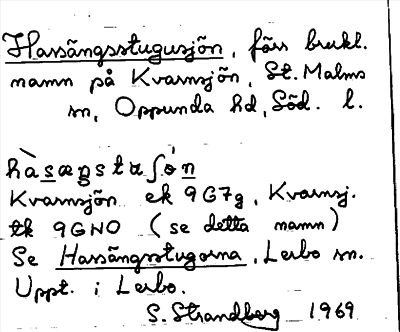 Hassängsstugusjön, förr brukl.
namn på Kvarnsjön, St. Malms
sn, Oppunda hd, Söd. l.
hàsæŋstɯʃón
Kvarnsjön ek 9G7g, Kvarnsj.
tk 9GNO (se detta namn)
Se Hassängsstugorna, Lerbo sn.
Uppt. i Lerbo.
S. Strandberg 1969